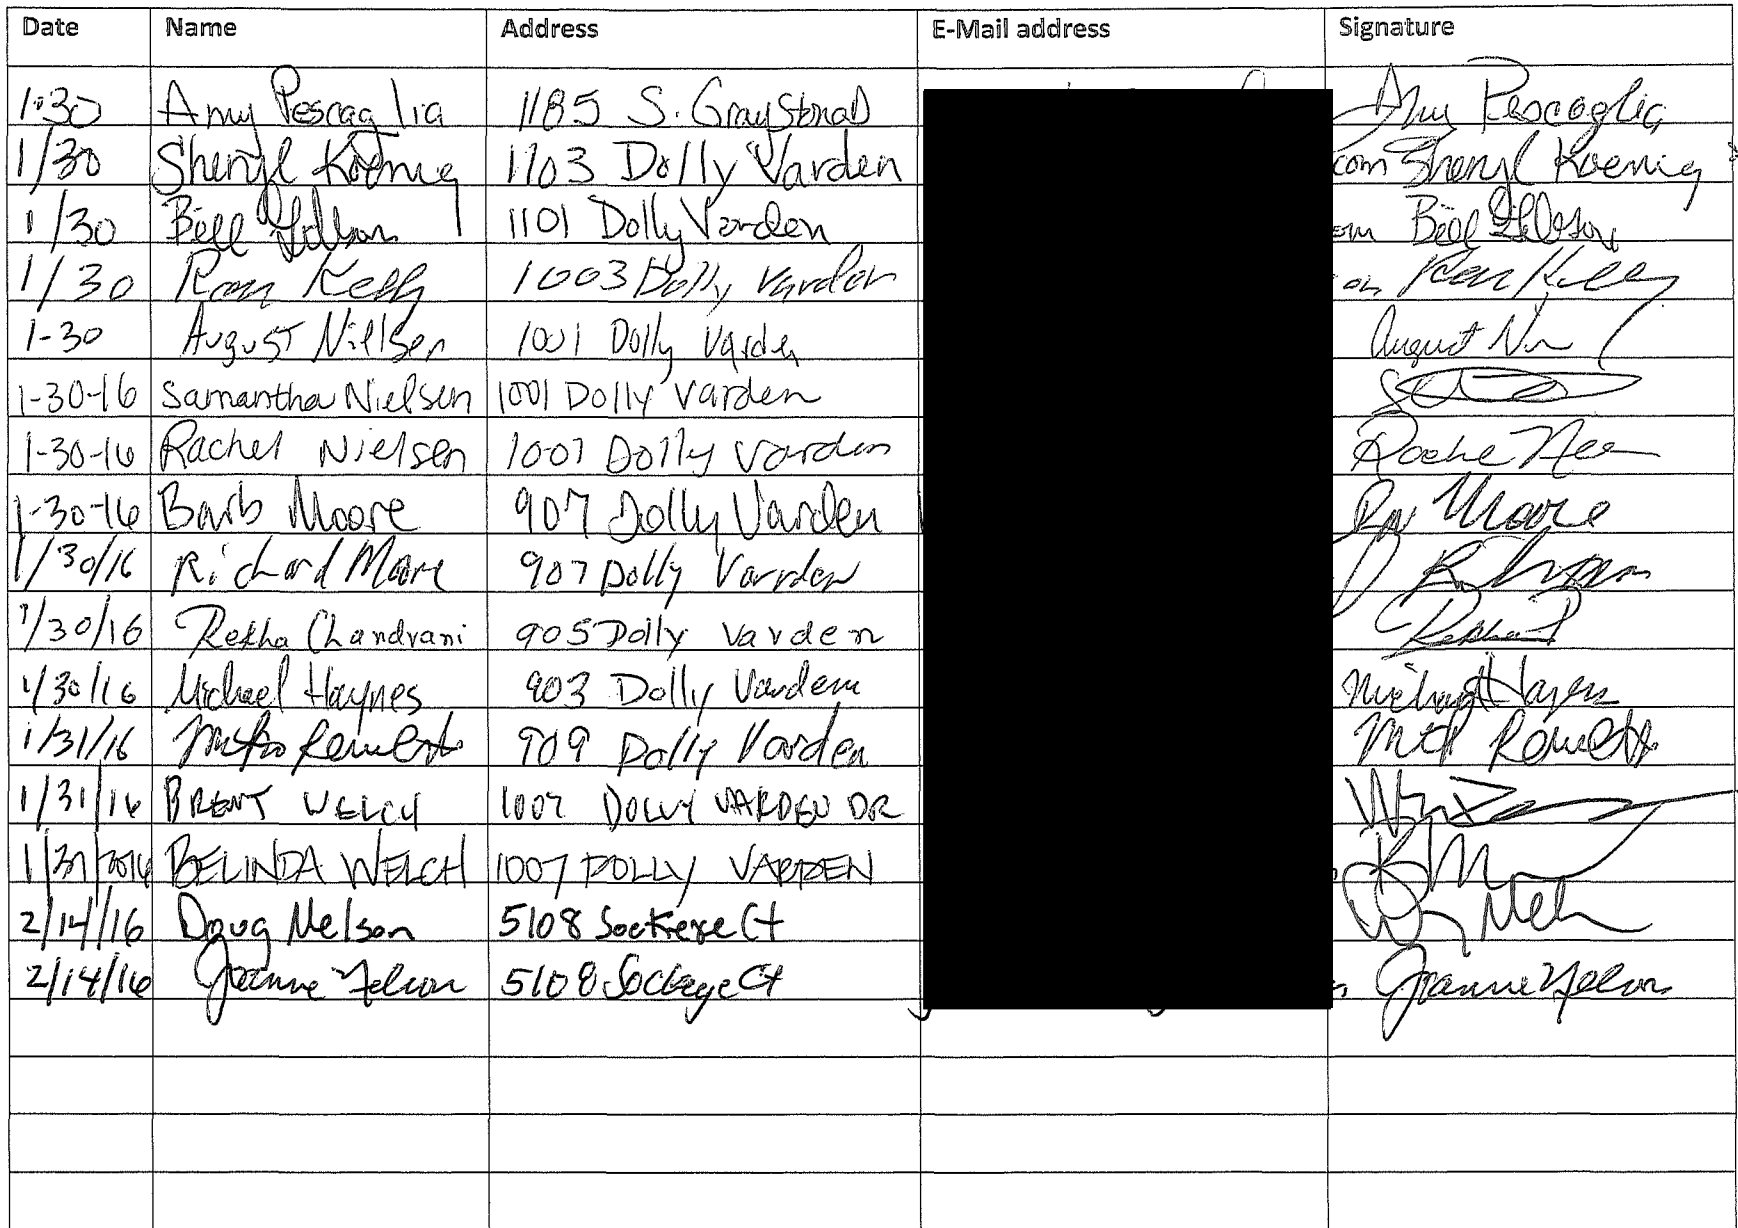 Date Name Address E-Mail address Signature
1-30 Amy Pescaglia 1185 S. Amy Pescaglia
1/30 Sheryl Koenig 1103 Dolly Varden com Sheryl Koenig
1/30 Bill 1101 Dolly Varden Bill
1/30 Ron Kelly 1003 Dolly Varden Ron Kelly
1-30 August Nillsen 1001 Dolly Varden August
1-30-16 Samantha Nielsen 1001 Dolly Varden
1-30-16 Rachel Nielsen 1001 Dolly Varden
1-30-16 Barb Moore 907 Dolly Varden Moore
1/30/16 Richard Moore 907 Dolly Varden
1/30/16 Rekha Chandvani 905 Dolly Varden
1/30/16 Michael Haynes 903 Dolly Varden Michael Haynes
1/31/16 909 Dolly Varden
1/31/16 BRENT WELCH 1007 DOLLY VARDEN DR
1/31/2016 BELINDA WELCH 1007 DOLLY VARDEN
2/14/16 Doug Nelson 5108 Sockeye Ct
2/14/16 Jeanne Nelson 5108 Sockeye Ct Jeanne Nelson